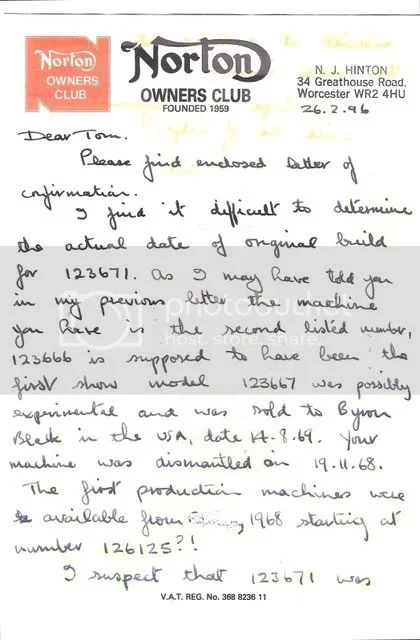 Norton
OWNERS
CLUB
Norton
OWNERS CLUB
FOUNDED 1959
N. J. HINTON
34 Greathouse Road.
Worcester WR2 4HU
26.2.96
Dear Tom.
Please find enclosed letter of
confirmation.
I find it difficult to determine
the actual date of original build
for 123671. As I may have told you
in my previous letter the machine
you have is the second listed number,
123666 is supposed to have been the
first show model 123667 was possibly
experimental and was sold to Byron
Black in the USA, date 14.8.69. Your
machine was dismantled on 19.11.68.
The first production machines were
available from 1968 starting at
number 126125?!
I suspect that 123671 was
V.A.T. REG. No. 368 8236 11
photobucket
host. store. share.